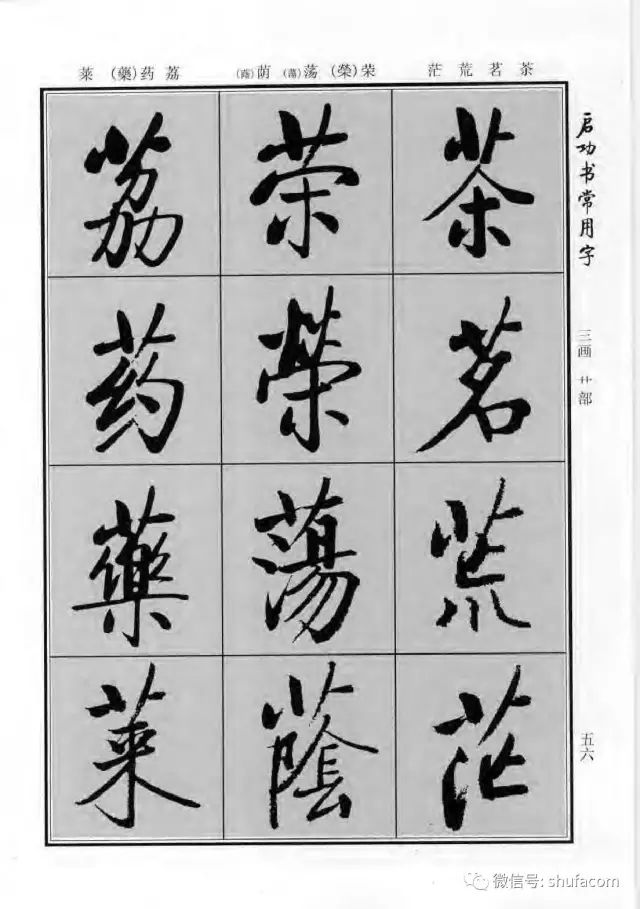 茶 茗 荒 茫 荣(榮) 荡(蕩) 荫(蔭) 荔 药(藥) 莱
启功书常用字
三画 艹部
五六
茶茗荒茫
荣榮蕩蔭
荔药藥莱
微信号: shufacom